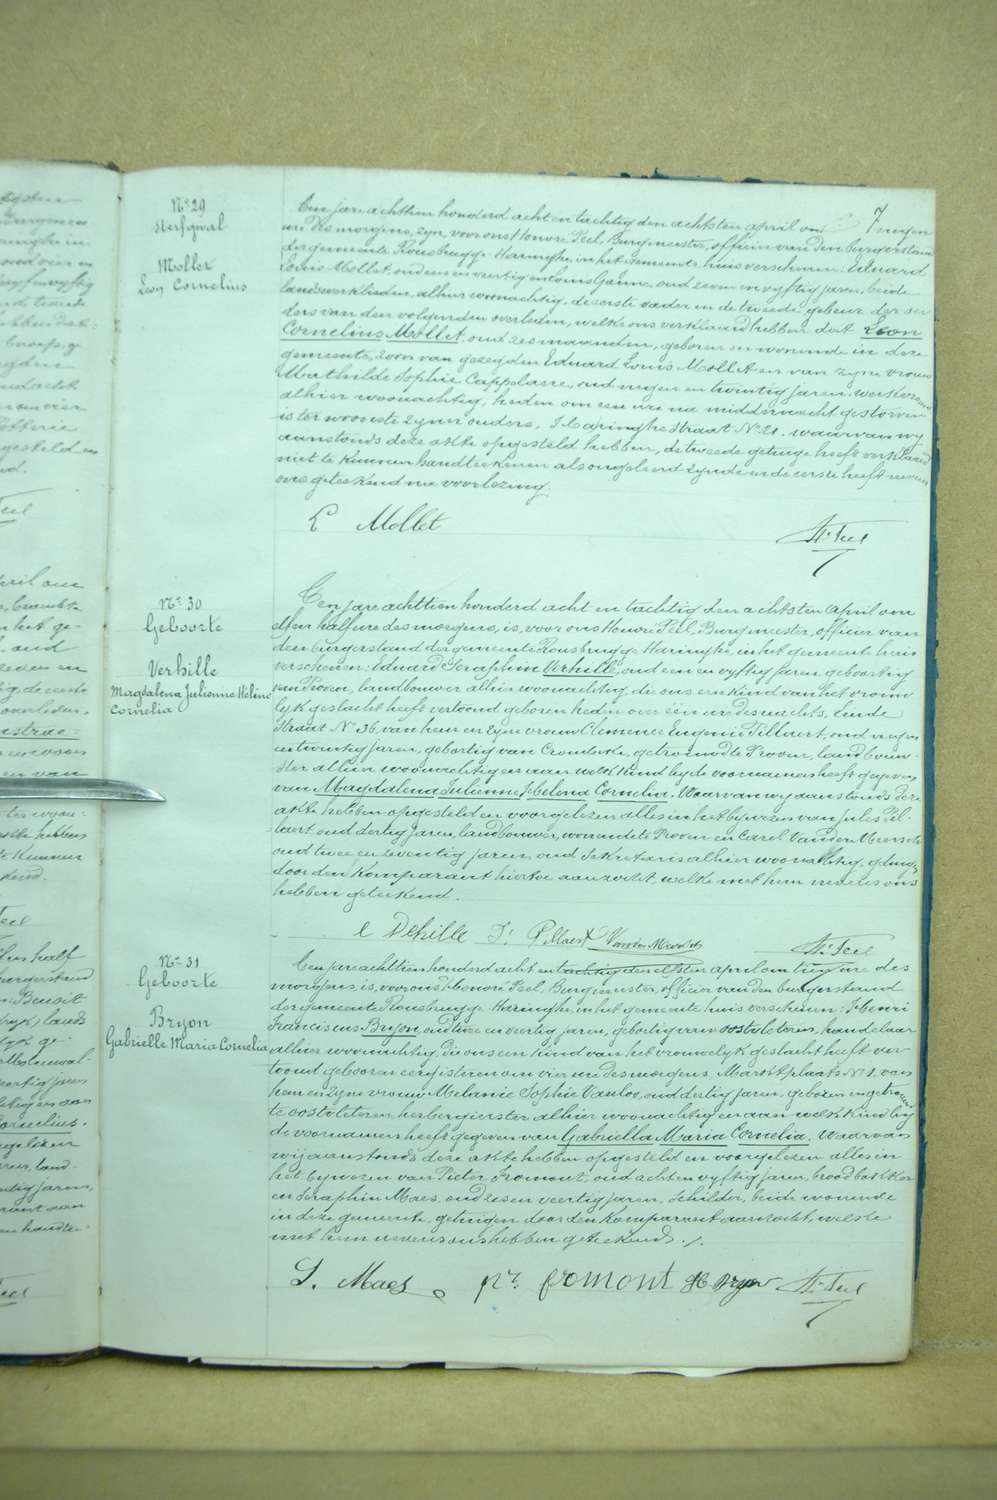 7
Nº 29
Sterfgeval
Mollet
Leon Cornelius
Ten jare achttien honderd acht en tachtig den achtsten april om negen
ure des morgens, zyn, voor ons Honoré Feel, Burgmeester, officier van den burgerstand
der gemeente Rousbrugge-Haringhe, in het gemeente huis verschenen: Eduard
Louis Mollet, oud een en veertig en Louis Ganne, oud zeven en vyftig jaren, beide
landswerklieden, alhier woonachtig, de eerste vader en de tweede gebuur der ou
ders van den volgenden overleden, welke ons verklaard hebben dat Leon
Cornelius Mollet, oud zes maanden, geboren en wonende in deze
gemeente, zoon van gezegden Eduard Louis Mollet en van zyne vrouw
Mathilde Sophie Cappelaere, oud negen en twintig jaren, werkvrouw
alhier woonachtig, heden om een ure na middernacht gestorven
is ter woonste zyner ouders, Haringhestraat Nº 21. waarvan wy
aanstonds deze akte opgesteld hebben, de tweede getuige heeft verklaard
niet te kunnen handteekenen als ongeleerd zynde en de eerste heeft nevens
ons geteekend na voorlezing.
L Mollet
H. Feel
Nº 30
Geboorte
Verhille
Magdalena Julienne Hélène
Cornelia
Ten jare achttien honderd acht en tachtig den achtsten April om
elfer half ure des morgens, is, voor ons Honoré Feel, Burgmeester, officier van
den burgerstand der gemeente Rousbrugge-Haringhe, in het gemeente huis
verschenen: Eduard Seraphin Verhille, oud een en vyftig jaren, geboortig
van Proven, landbouwer alhier woonachtig, die ons een kind van het vrouwe
lyk geslacht heeft vertoond geboren heden om één ure des nachts, Einde
Straat Nº 36, van hem en zyne vrouw Clemence Eugenie Pillaert, oud negen
en twintig jaren, geboortig van Crombeke, getrouwd te Proven, landbouw-
ster alhier woonachtig en aan welk kind hy de voornamen heeft gegeven
van Magdalena Julienne Helena Cornelia. Waarvan wy aanstonds deze
akte hebben opgesteld en voorgelezen alles in het bywezen van Jules Pil-
laert, oud dertig jaren, landbouwer, wonende te Proven en Carel Vanden Meersch
oud twee en zeventig jaren, oud Sekretaris alhier woonachtig, getuigen
door den Komparant hiertoe aanzocht, welke met hem nevens ons
hebben geteekend.
e Vehille J. Pillaert Vanden Meersch
H. Feel
Nº 31
Geboorte
Bryon
Gabrielle Maria Cornelia
Ten jare achttien honderd acht en tachtig den elfsten april om tien ure des
morgens, is, voor ons Honoré Feel, Burgmeester, officier van den burgerstand
der gemeente Rousbrugge-Haringhe, in het gemeente huis verschenen: Henri
Franciscus Bryon, oud twee en veertig jaren, geboortig van Oostvleteren, handelaar
alhier woonachtig, die ons een kind van het vrouwelyk geslacht heeft ver-
toond geboren eergisteren om vier ure des morgens, Marktplaats Nº 1. van
hem en zyne vrouw Melanie Sophie Vanloo, oud dertig jaren, geboren en getrouwd
te Oostvleteren herbergierster alhier woonachtig en aan welk kind hy
de voornamen heeft gegeven van Gabriella Maria Cornelia. Waarvan
wy aanstonds deze akte hebben opgesteld en voorgelezen alles in
het bywezen van Pieter Fromont, oud acht en vyftig jaren, broodbakker
en Seraphin Maes, oud zes en veertig jaren, Schilder, beide wonende
in deze gemeente, getuigen door den Komparant aanzocht, welke
met hem nevens ons hebben geteekend. /.
S. Maes pr. fromont H Bryon
H. Feel